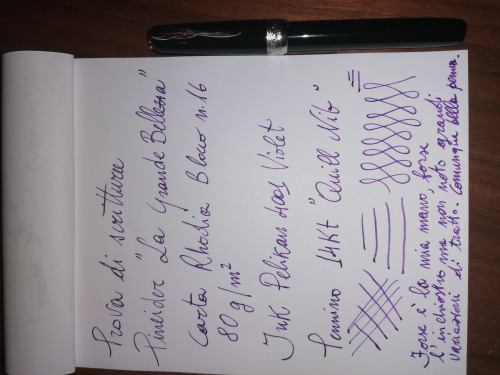 Prova di scrittura
Pineider "La Grande Bellezza"
Carta Rhodia Bloco n. 16
80 g/m²
Ink Pelikan 4001 Violet
Pennino 14Kt "Quill Nib"
Forse è la mia mano, forse
l'inchiostro ma non noto grandi
variazioni di tratto. Comunque bella penna.